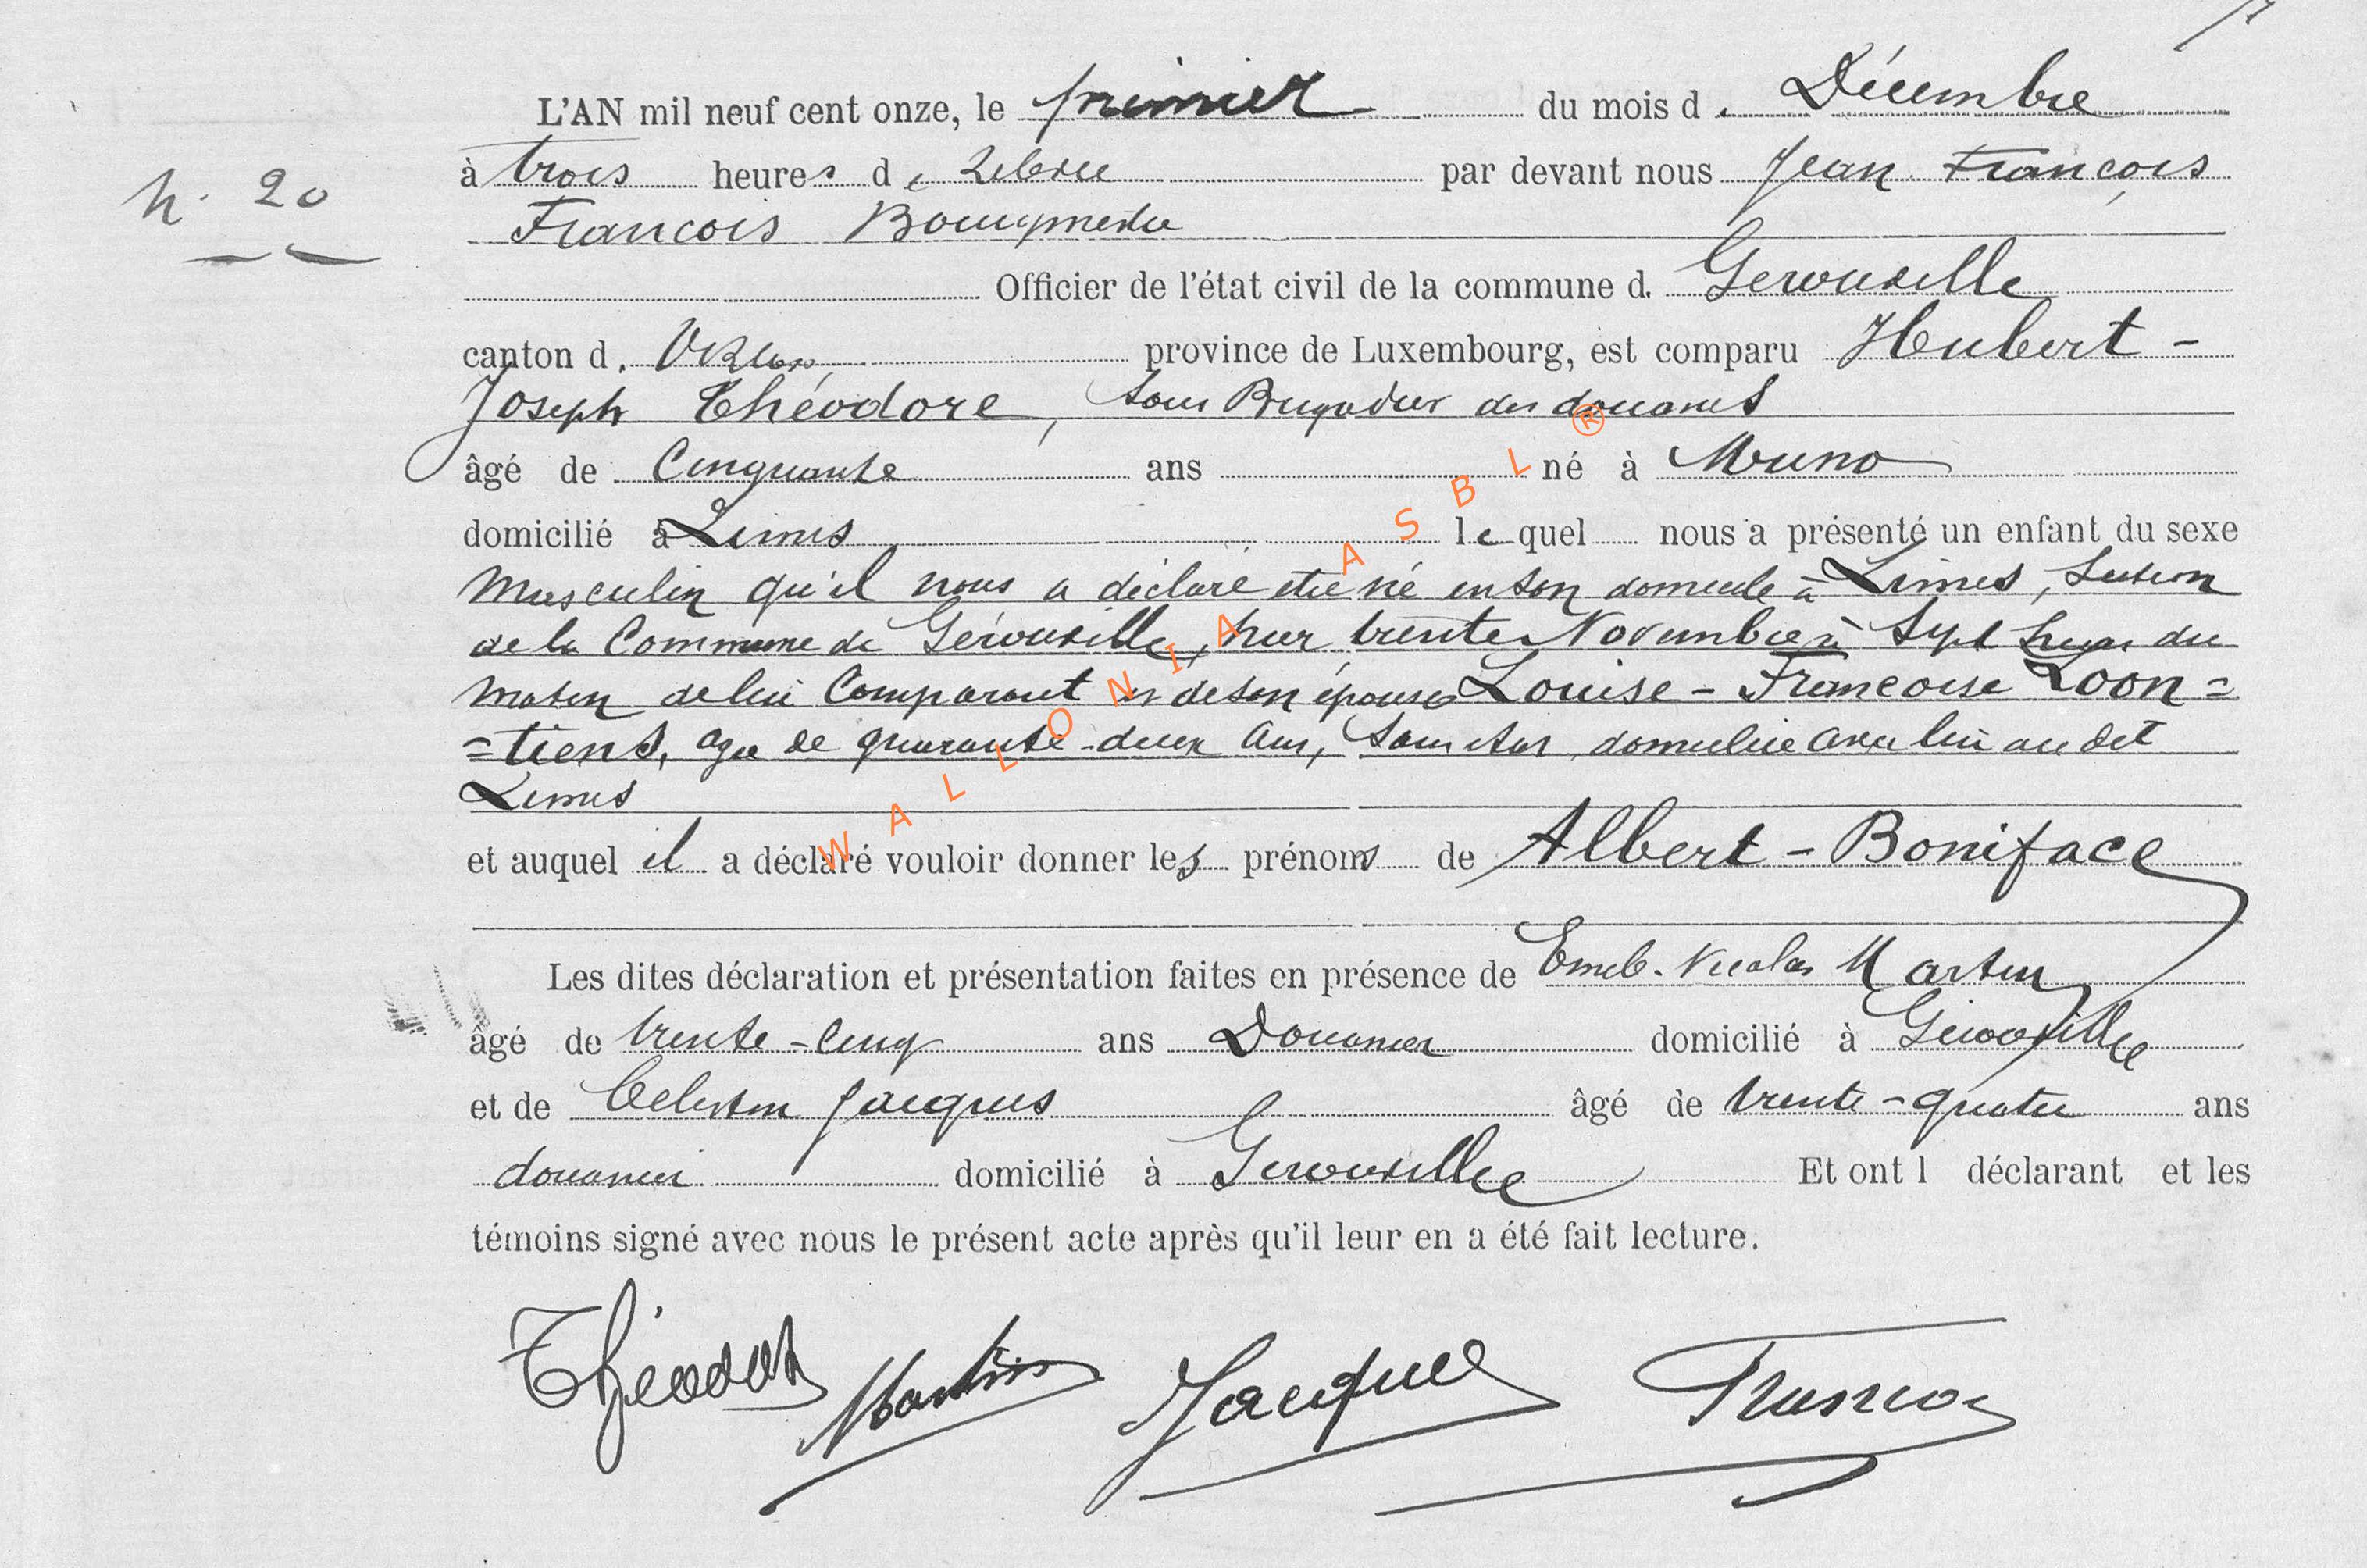 N. 20
L'AN mil neuf cent onze, le premier du mois d. Décembre
à trois heures de relevée par devant nous Jean François
François Bourgmestre
Officier de l'état civil de la commune d. Gerouville
canton d. Virton, province de Luxembourg, est comparu Hubert -
Joseph Théodore, Sous Brigadier des douanes
âgé de Cinquante ans né à Muno
domicilié à Limes lequel nous a présenté un enfant du sexe
Masculin qu'il nous a déclaré être né en son domicile à Limes, Section
de la Commune de Gérouville, hier trente Novembre à Sept heures du
matin de lui Comparant et de son épouse Louise - Françoise Loon =
= tiens, agée de quarante-deux ans, Sans état, domiciliée avec lui au dit
Limes
et auquel il a déclaré vouloir donner les prénoms de Albert - Boniface
Les dites déclaration et présentation faites en présence de Emile-Nicolas Martin
âgé de trente-cinq ans Douanier domicilié à Gérouville
et de Celestin Jacques âgé de trente-quatre ans
douanier domicilié à Gerouville Et ont l déclarant et les
témoins signé avec nous le présent acte après qu'il leur en a été fait lecture.
Théodore Martin Jacques François
WALLONIA ASBL ®